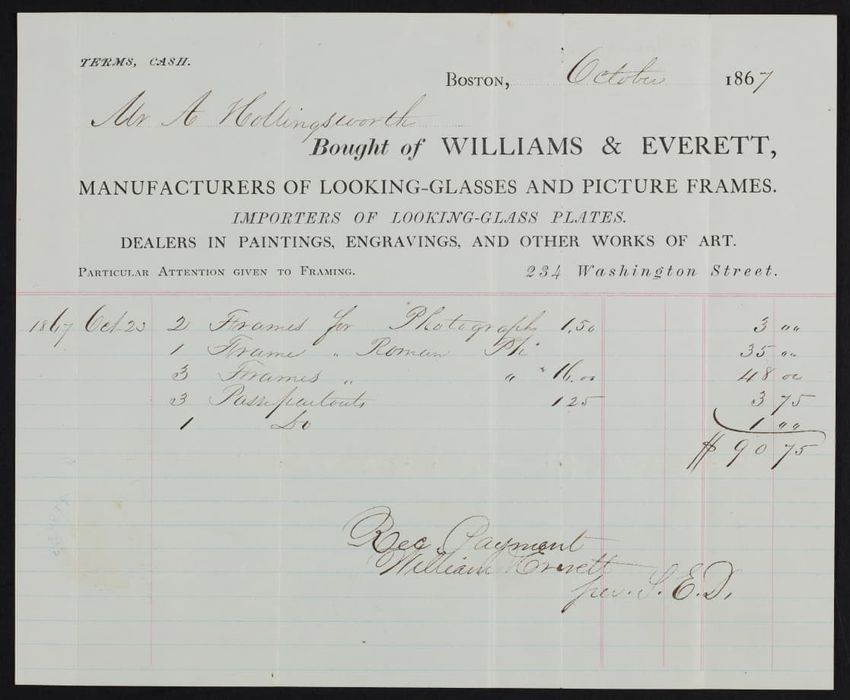 TERMS, CASH.
BOSTON, October 1867
Mr A Hollingsworth
Bought of WILLIAMS & EVERETT,
MANUFACTURERS OF LOOKING-GLASSES AND PICTURE FRAMES.
IMPORTERS OF LOOKING-GLASS PLATES.
DEALERS IN PAINTINGS, ENGRAVINGS, AND OTHER WORKS OF ART.
PARTICULAR ATTENTION GIVEN TO FRAMING. 234 Washington Street.
1867 Oct 23 2 Frames for Photograph 1,50 3 "
1 Frame " Roman 35 "
3 Frames " " " 16.00 48 00
3 Passepartouts 1 25 3 75
1 Do 1 "
$ 90 75
Rec. Payment
William Everett
per. S. E. D.